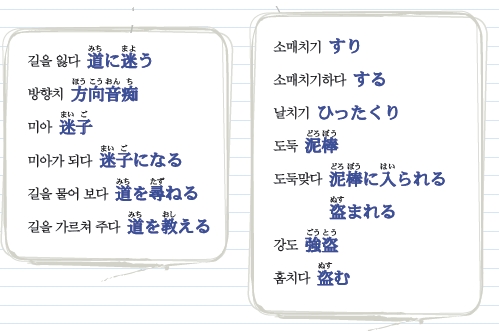 길을 잃다 道に迷う
방향치 方向音痴
미아 迷子
미아가 되다 迷子になる
길을 물어 보다 道を尋ねる
길을 가르쳐 주다 道を教える
소매치기 すり
소매치기하다 する
날치기 ひったくり
도둑 泥棒
도둑맞다 泥棒に入られる
盗まれる
강도 強盗
훔치다 盗む